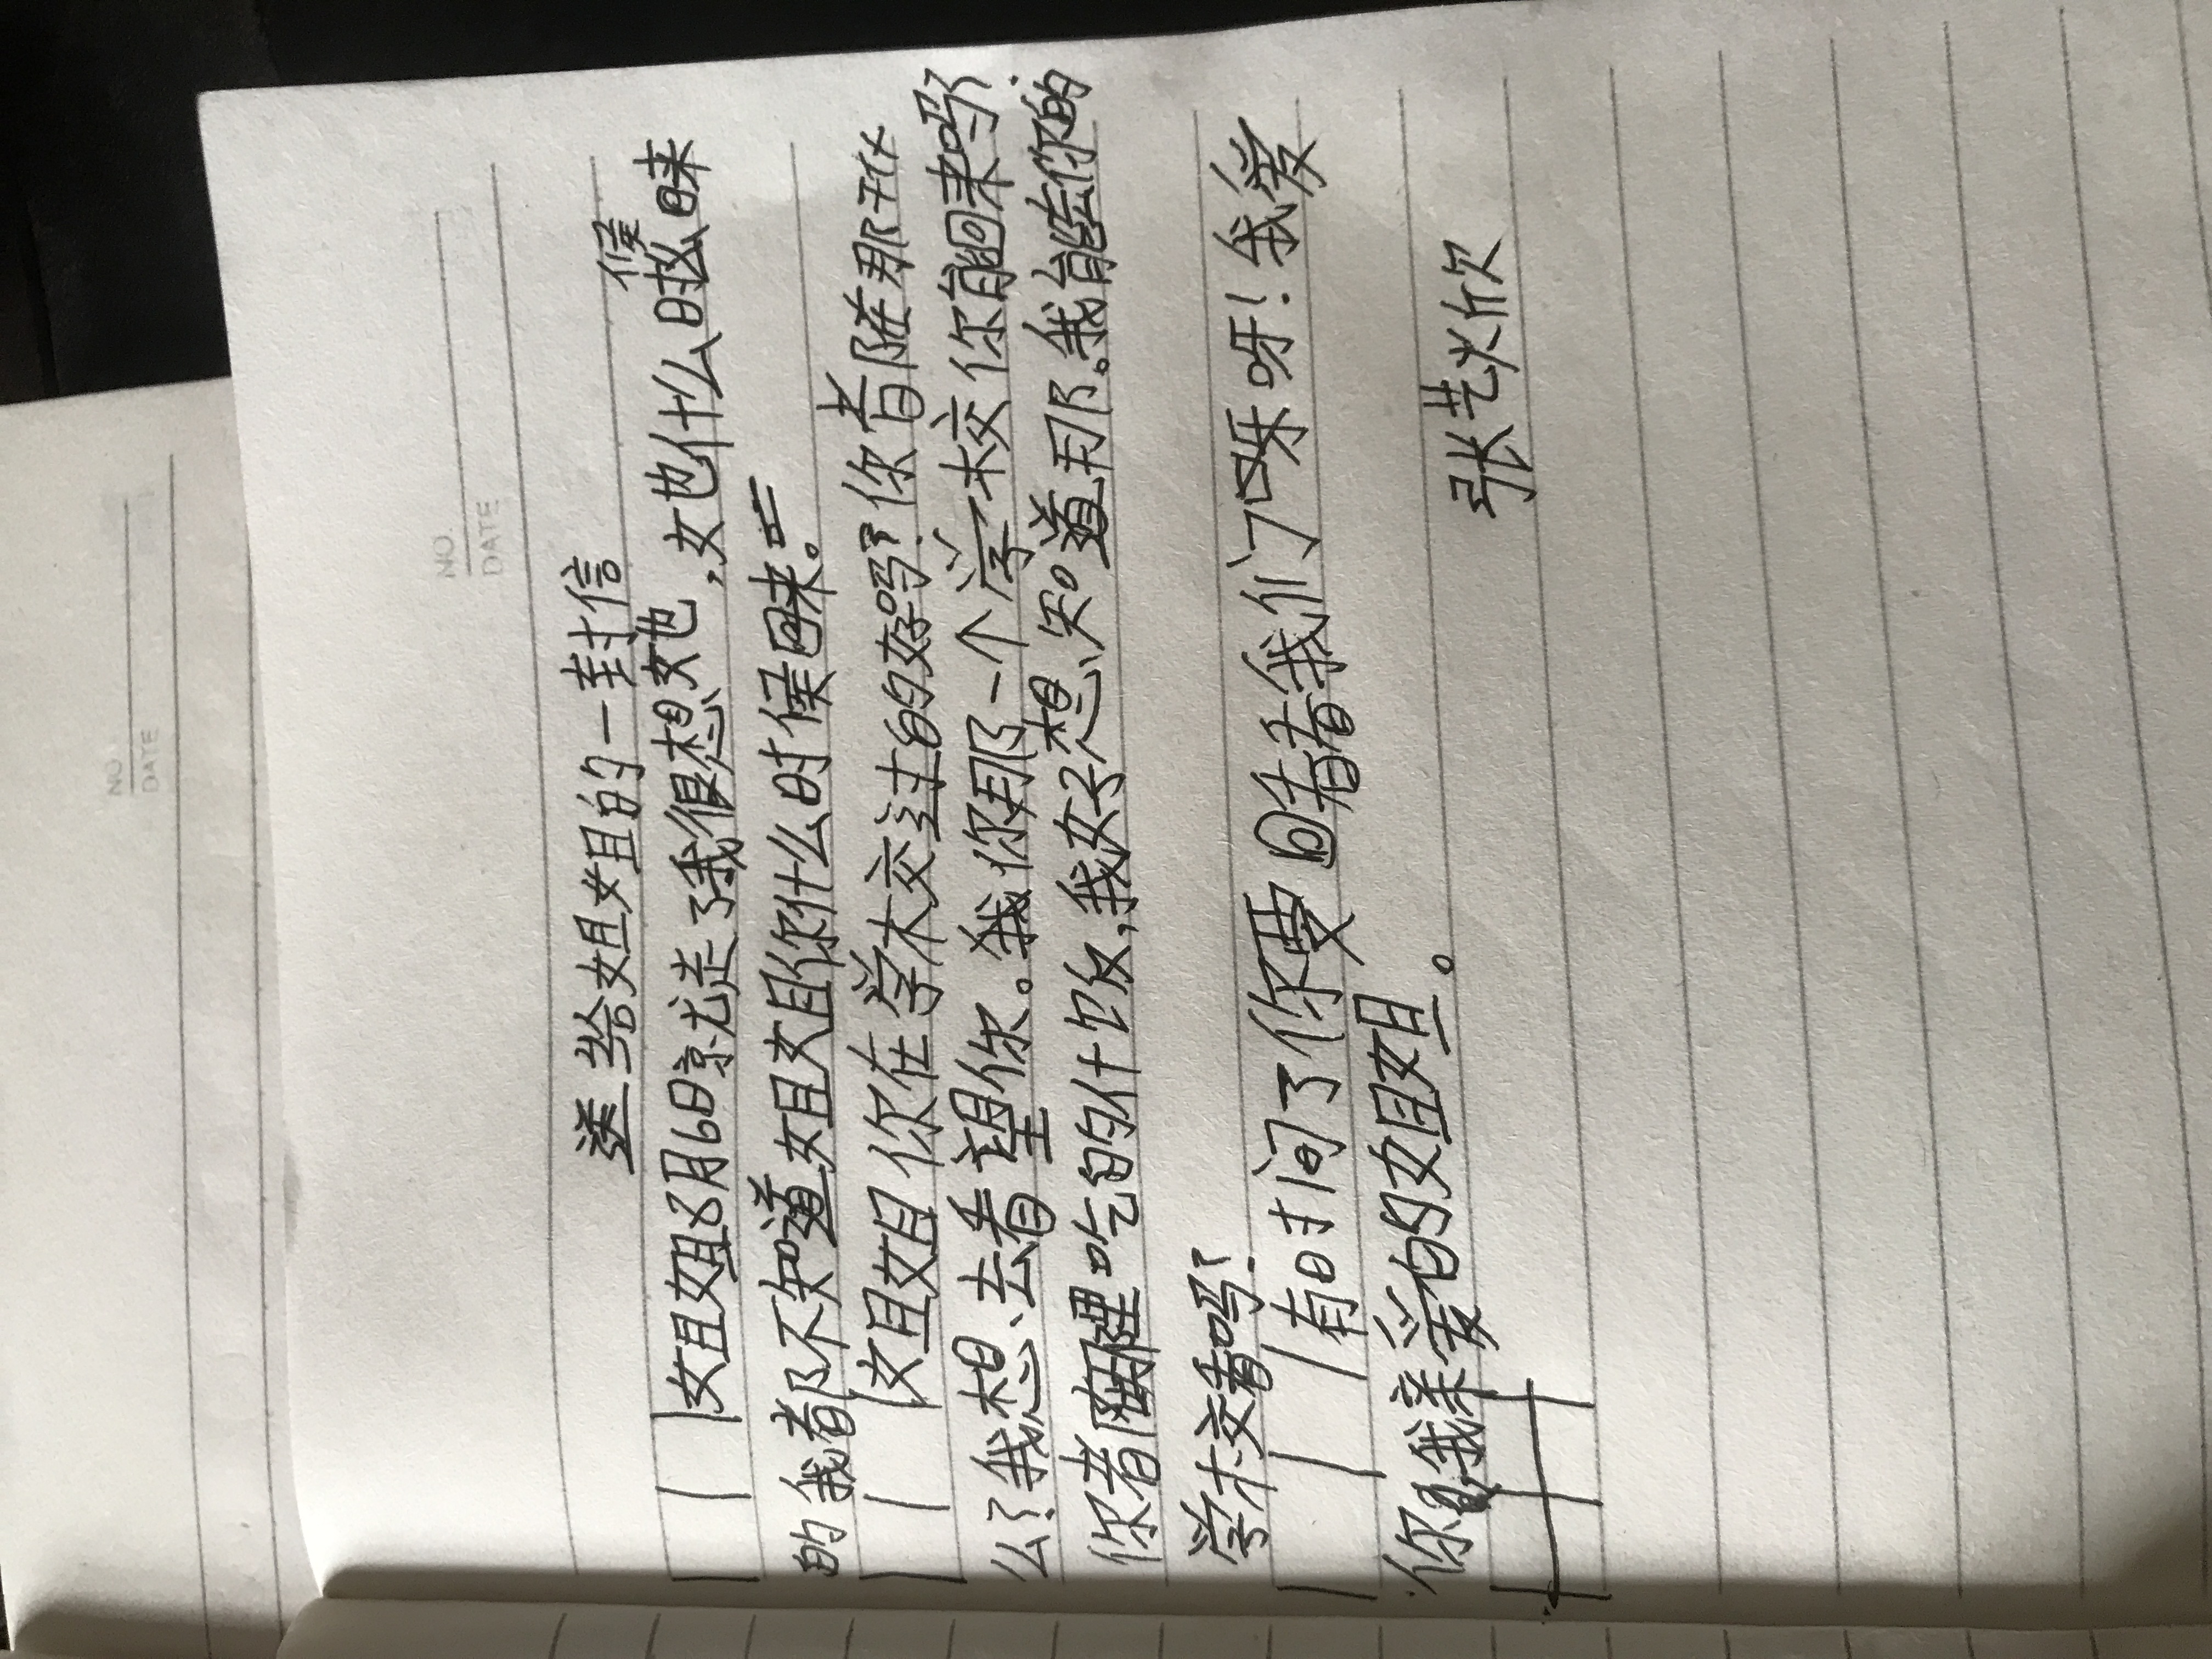 NO.
DATE
NO.
DATE
送给姐姐的一封信
姐姐8月6日就走了我很想她,她什么时候来
的我都不知道姐姐你什么时候回来。
姐姐你在学校过的好吗?你都在那干什
么?我想去看望你。我你那一个学校你能回来吗?
你都在哪里吃的什饭,我好想知道那。我能去你的
学校看吗?
有时间了你要回来看看我们呀呀!我爱
你我亲爱的姐姐。
张艺炘欠